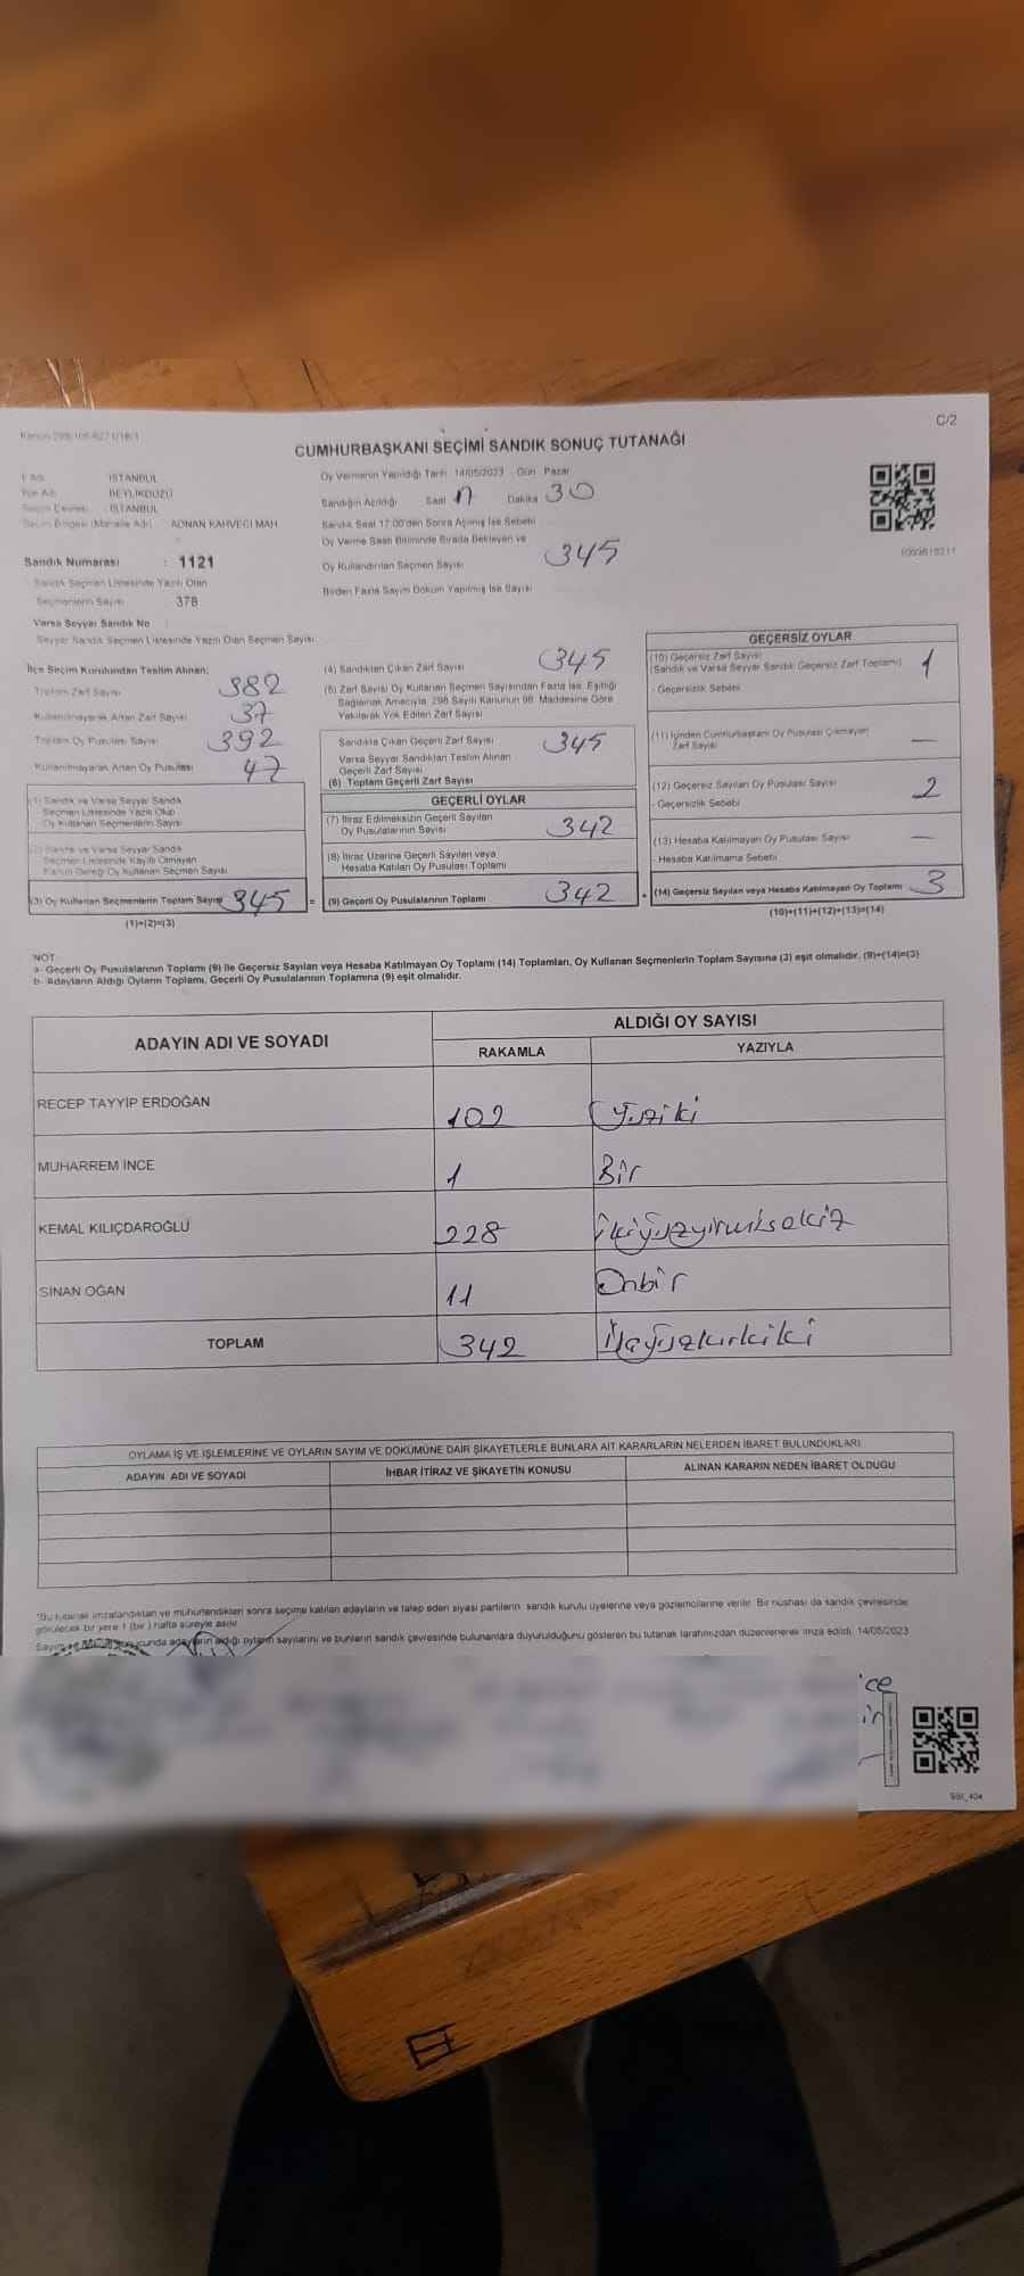 C/2
CUMHURBAŞKANI SEÇİMİ SANDIK SONUÇ TUTANAĞI
İl Adı: İSTANBUL
İlçe Adı: BEYLİKDÜZÜ
Seçim Çevresi: İSTANBUL
Seçim Bölgesi (Mahalle Adı): ADNAN KAHVECİ MAH
Sandık Numarası : 1121
Sandık Seçmen Listesinde Yazılı Olan
Seçmenlerin Sayısı 378
Varsa Seyyar Sandık No
Seyyar Sandık Seçmen Listesinde Yazılı Olan Seçmen Sayısı:
Oy Vermenin Yapıldığı Tarih 14/05/2023 - Gün: Pazar
Sandığın Açıldığı Saat Dakika 30
Sandık Saat 17.00'den Sonra Açılmış İse Sebebi
Oy Verme Saati Bitiminde Sırada Bekleyen ve
Oy Kullandırılan Seçmen Sayısı 345
Birden Fazla Sayım Döküm Yapılmış İse Sayısı
İlçe Seçim Kurulundan Teslim Alınan:
Toplam Zarf Sayısı 382
Kullanılmayarak Artan Zarf Sayısı 37
Toplam Oy Pusulası Sayısı 392
Kullanılmayarak Artan Oy Pusulası 47
(1) Sandık ve Varsa Seyyar Sandık
Seçmen Listesinde Yazılı Olup
Oy Kullanan Seçmenlerin Sayısı
(2) Sandık ve Varsa Seyyar Sandık
Seçmen Listesinde Kayıtlı Olmayan
Kanun Gereği Oy Kullanan Seçmen Sayısı
(3) Oy Kullanan Seçmenlerin Toplam Sayısı 345 =
(1)+(2)=(3)
(4) Sandıktan Çıkan Zarf Sayısı 345
(5) Zarf Sayısı Oy Kullanan Seçmen Sayısından Fazla İse, Eşitliği
Sağlamak Amacıyla, 298 Sayılı Kanunun 98. Maddesine Göre
Yakılarak Yok Edilen Zarf Sayısı
Sandıkta Çıkan Geçerli Zarf Sayısı 345
Varsa Seyyar Sandıktan Teslim Alınan
Geçerli Zarf Sayısı
(6) Toplam Geçerli Zarf Sayısı
GEÇERLİ OYLAR
(7) İtiraz Edilmeksizin Geçerli Sayılan
Oy Pusulalarının Sayısı 342
(8) İtiraz Üzerine Geçerli Sayılan veya
Hesaba Katılan Oy Pusulası Toplamı
(9) Geçerli Oy Pusulalarının Toplamı 342 +
GEÇERSİZ OYLAR
(10) Geçersiz Zarf Sayısı
(Sandık ve Varsa Seyyar Sandık Geçersiz Zarf Toplamı) 1
Geçersizlik Sebebi
(11) İçinden Cumhurbaşkanı Oy Pusulası Çıkmayan
Zarf Sayısı —
(12) Geçersiz Sayılan Oy Pusulası Sayısı 2
Geçersizlik Sebebi
(13) Hesaba Katılmayan Oy Pusulası Sayısı —
Hesaba Katılmama Sebebi
(14) Geçersiz Sayılan veya Hesaba Katılmayan Oy Toplamı 3
(10)+(11)+(12)+(13)=(14)
NOT
a- Geçerli Oy Pusulalarının Toplamı (9) ile Geçersiz Sayılan veya Hesaba Katılmayan Oy Toplamı (14) Toplamları, Oy Kullanan Seçmenlerin Toplam Sayısına (3) eşit olmalıdır. (9)+(14)=(3)
b- Adayların Aldığı Oyların Toplamı, Geçerli Oy Pusulalarının Toplamına (9) eşit olmalıdır.
ADAYIN ADI VE SOYADI ALDIĞI OY SAYISI
RAKAMLA YAZIYLA
RECEP TAYYİP ERDOĞAN 102 Yüziki
MUHARREM İNCE 1 Bir
KEMAL KILIÇDAROĞLU 228 ikiyüzyirmisekiz
SİNAN OĞAN 11 Onbir
TOPLAM 342 Üçyüzkırkiki
OYLAMA İŞ VE İŞLEMLERİNE VE OYLARIN SAYIM VE DÖKÜMÜNE DAİR ŞİKAYETLERLE BUNLARA AİT KARARLARIN NELERDEN İBARET BULUNDUKLARI
ADAYIN ADI VE SOYADI İHBAR İTİRAZ VE ŞİKAYETİN KONUSU ALINAN KARARIN NEDEN İBARET OLDUĞU
*Bu tutanak imzalandıktan ve mühürlendikten sonra seçime katılan adayların ve talep eden siyasi partilerin sandık kurulu üyelerine veya gözlemcilerine verilir. Bir nüshası da sandık çevresinde
görülecek bir yere 1 (bir) hafta süreyle asılır.
adayların aldığı oyların sayılarını ve bunların sandık çevresinde bulunanlara duyurulduğunu gösteren bu tutanak tarafımızdan düzenlenerek imza edildi. 14/05/2023